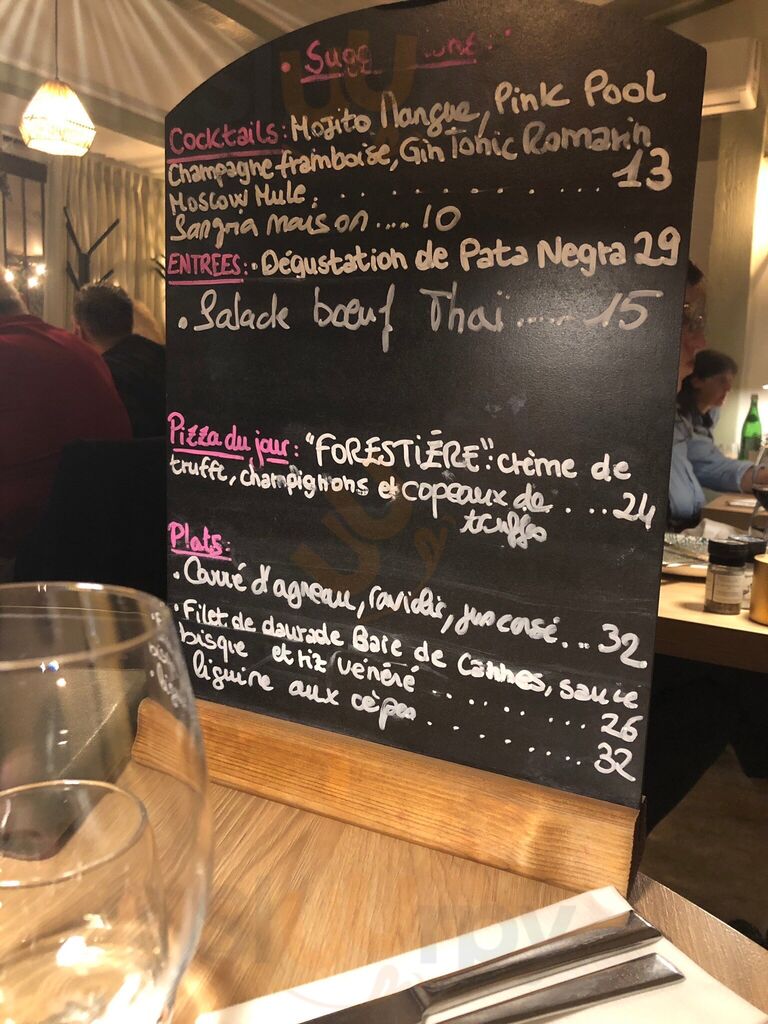 Cocktails: Mojito Mangue, Pink Pool
Champagne framboise, Gin Tonic Romarin
Moscow Mule. . . . . . . . . . . . . 13
Sangria maison .... 10
ENTREES: • Dégustation de Pata Negra 29
• Salade bœuf Thaï ...... 15
Pizza du jour: "FORESTIÈRE": crème de
truffe, champignons et copeaux de .... 24
truffes
Plats:
• Carré d'agneau, ravioli, jus corsé... 32
• Filet de daurade Baie de Cannes, sauce
bisque et riz vénéré . . . . . . . . 26
liguine aux cèpes . . . . . . . . . 32